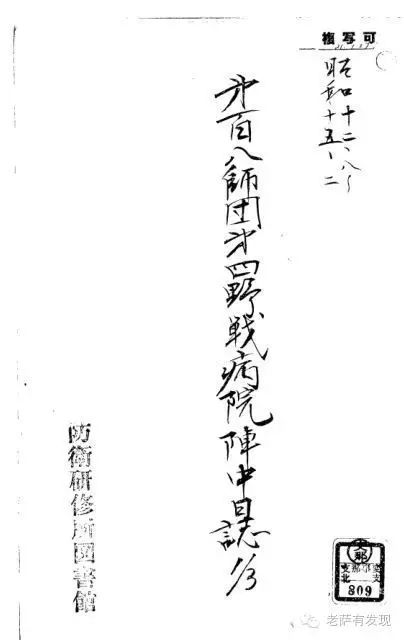 複写可
昭和十二、八〜
十五、二
第百八師団第四野戦病院陣中日誌 1/3
防衛研修所図書館
支那事変
北支
809
老萨有发现